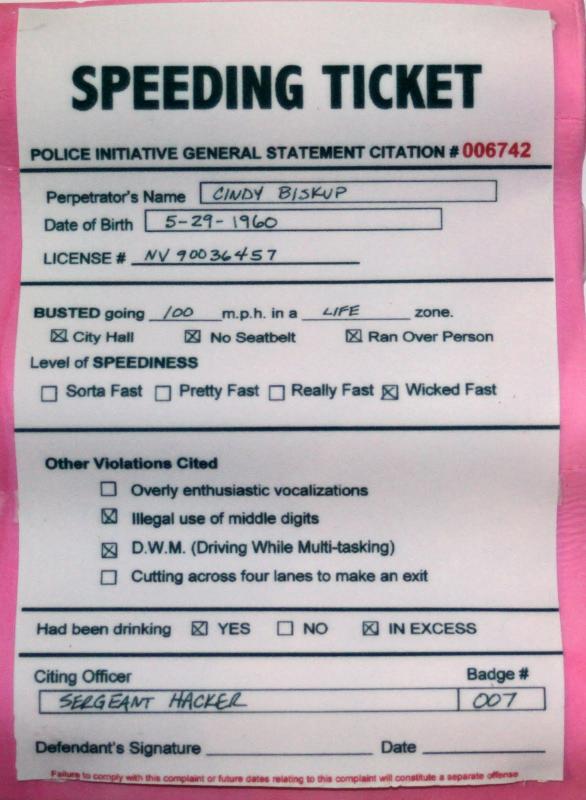 SPEEDING TICKET
POLICE INITIATIVE GENERAL STATEMENT CITATION # 006742
Perpetrator's Name CINDY BISKUP
Date of Birth 5-29-1960
LICENSE # NV 90036457
BUSTED going 100 m.p.h. in a LIFE zone.
☒ City Hall ☒ No Seatbelt ☒ Ran Over Person
Level of SPEEDINESS
☐ Sorta Fast ☐ Pretty Fast ☐ Really Fast ☒ Wicked Fast
Other Violations Cited
☐ Overly enthusiastic vocalizations
☒ Illegal use of middle digits
☒ D.W.M. (Driving While Multi-tasking)
☐ Cutting across four lanes to make an exit
Had been drinking ☒ YES ☐ NO ☒ IN EXCESS
Citing Officer Badge #
SERGEANT HACKER 007
Defendant's Signature Date
Failure to comply with this complaint or future dates relating to this complaint will constitute a separate offense